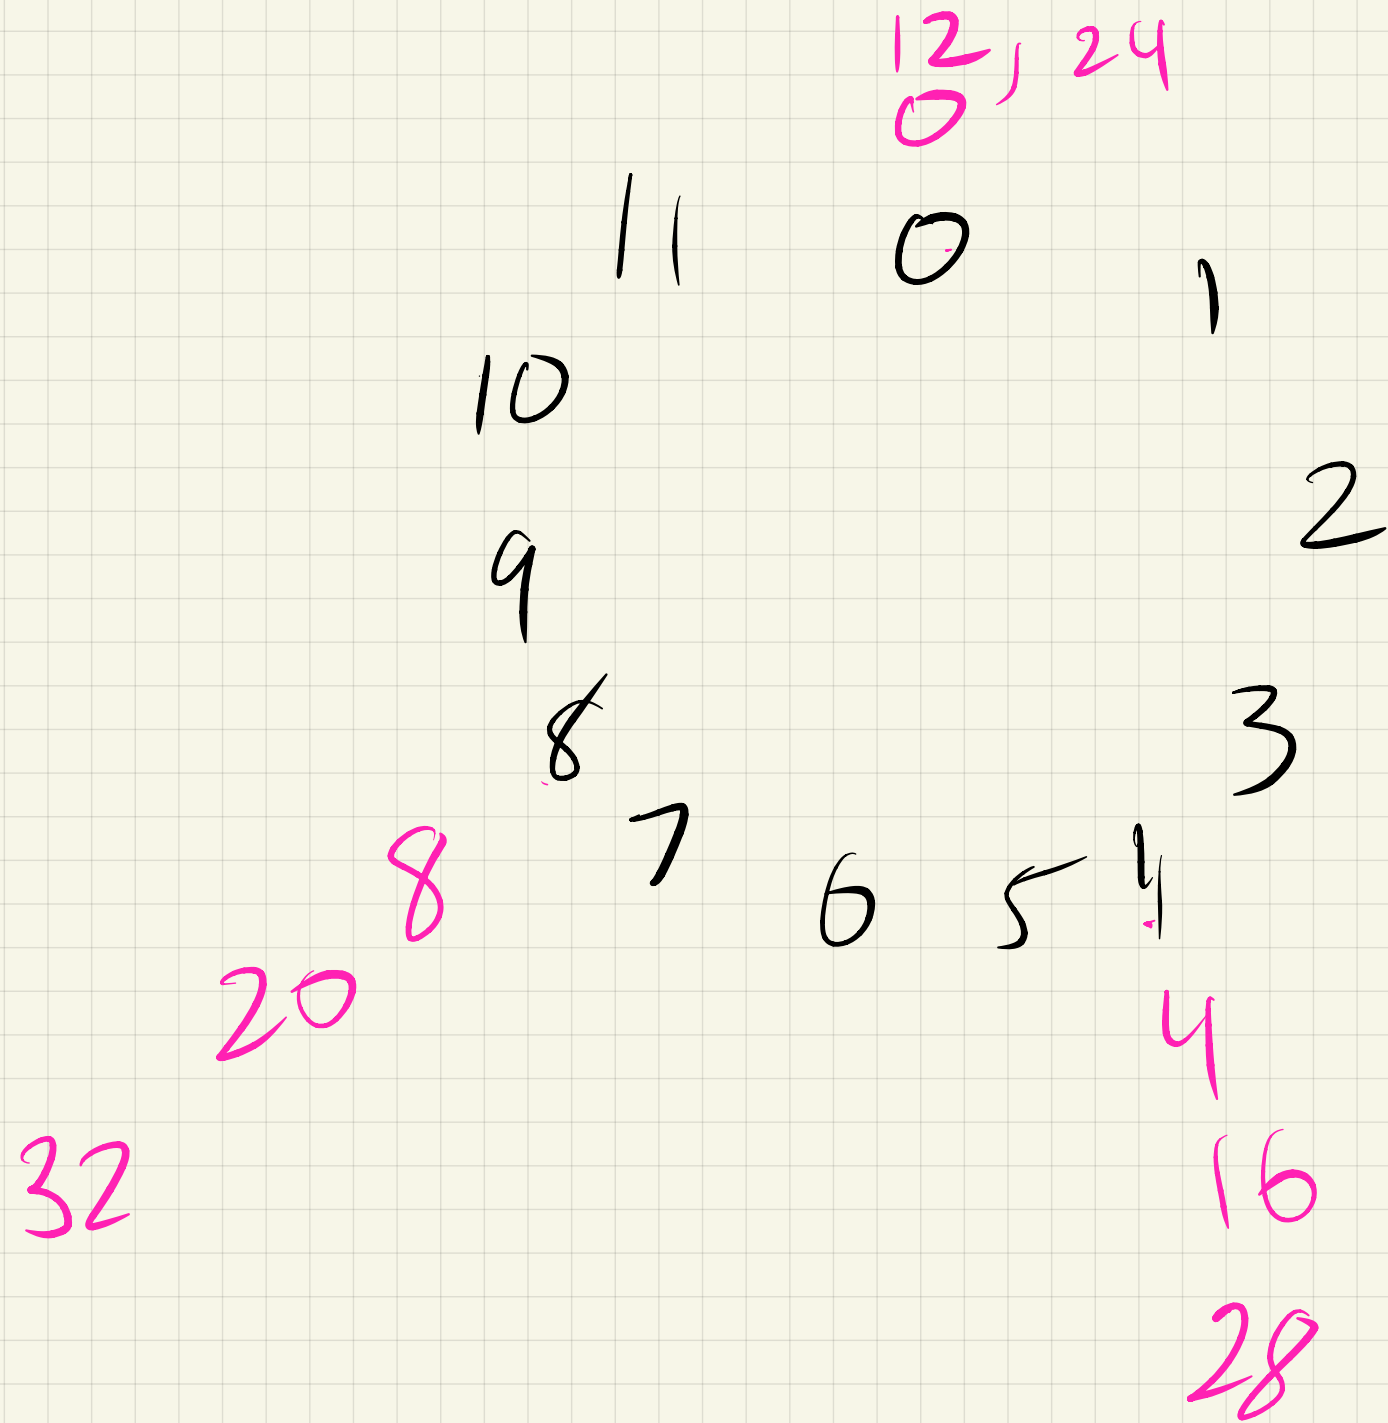 12, 24
0
11 0 1
10
2
9
8 3
7 6 5 4
8
20 4
32 16
28